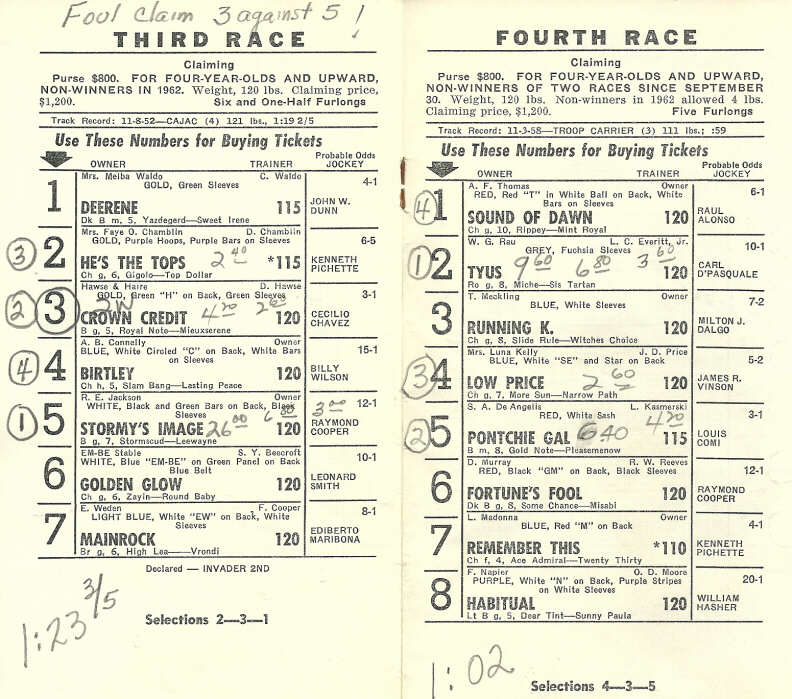 Foul Claim 3 against 5!
THIRD RACE
Claiming
Purse $800. FOR FOUR-YEAR-OLDS AND UPWARD,
NON-WINNERS IN 1962. Weight, 120 lbs. Claiming price,
$1,200. Six and One-Half Furlongs
Track Record: 11-8-52—CAJAC (4) 121 lbs., 1:19 2/5
Use These Numbers for Buying Tickets
OWNER TRAINER Probable Odds JOCKEY
Mrs. Melba Waldo C. Waldo 4-1
GOLD, Green Sleeves
1 DEERENE 115 JOHN W. DUNN
Dk B m, 5, Yazdegerd—Sweet Irene
Mrs. Faye O. Chamblin D. Chamblin 6-5
GOLD, Purple Hoops, Purple Bars on Sleeves
3 2 HE'S THE TOPS 2 40 *115 KENNETH PICHETTE
Ch g, 6, Gigolo—Top Dollar
Hawse & Haire D. Hawse 3-1
GOLD, Green "H" on Back, Green Sleeves
2 3 CROWN CREDIT 4 20 2 60 120 CECILIO CHAVEZ
B g, 5, Royal Note—Mieuxserene
A. B. Connelly 15-1
BLUE, White Circled "C" on Back, White Bars
on Sleeves
4 4 BIRTLEY 120 BILLY WILSON
Ch h, 5, Slam Bang—Lasting Peace
R. E. Jackson Owner 12-1
WHITE, Black and Green Bars on Back, Black
Sleeves
1 5 STORMY'S IMAGE 26 00 6 80 3 00 120 RAYMOND COOPER
B g, 7, Stormscud—Leewayne
EM-BE Stable S. Y. Beecroft 10-1
WHITE, Blue "EM-BE" on Green Panel on Back
Blue Belt
6 GOLDEN GLOW 120 LEONARD SMITH
Ch g, 6, Zayin—Round Baby
E. Weden F. Cooper 8-1
LIGHT BLUE, White "EW" on Back, White
Sleeves
7 MAINROCK 120 EDIBERTO MARIBONA
Br g, 6, High Lea——Vrondi
Declared — INVADER 2ND
1:23 3/5
Selections 2—3—1
FOURTH RACE
Claiming
Purse $800. FOR FOUR-YEAR-OLDS AND UPWARD,
NON-WINNERS OF TWO RACES SINCE SEPTEMBER
30. Weight, 120 lbs. Non-winners in 1962 allowed 4 lbs.
Claiming price, $1,200. Five Furlongs
Track Record: 11-3-58—TROOP CARRIER (3) 111 lbs.; :59
Use These Numbers for Buying Tickets
OWNER TRAINER Probable Odds JOCKEY
A. F. Thomas Owner 6-1
RED, Red "T" in White Ball on Back, White
Bars on Sleeves
4 1 SOUND OF DAWN 120 RAUL ALONSO
Ch g, 10, Rippey—Mint Royal
W. G. Rau L. C. Everitt, Jr. 10-1
GREY, Fuchsia Sleeves
1 2 TYUS 9 60 6 80 3 60 120 CARL D'PASQUALE
Ro g, 8, Miche—Sis Tartan
T. Meckling Owner 7-2
BLUE, White Sleeves
3 RUNNING K. 120 MILTON J. DALGO
Ch g, 8, Slide Rule—Witches Choice
Mrs. Luna Kelly J. D. Price 5-2
BLUE, White "SE" and Star on Back
3 4 LOW PRICE 2 60 120 JAMES R. VINSON
Ch g, 7, More Sun—Narrow Path
S. A. De Angelis L. Kasmerski 3-1
RED, White Sash
2 5 PONTCHIE GAL 6 40 4 20 115 LOUIS COMI
B m, 8, Gold Note—Pleasemenow
D. Murray R. W. Reeves 12-1
RED, Black "GM" on Back, Black Sleeves
6 FORTUNE'S FOOL 120 RAYMOND COOPER
Dk B g, 8, Some Chance—Misabi
L. Madonna Owner 4-1
BLUE, Red "M" on Back
7 REMEMBER THIS *110 KENNETH PICHETTE
Ch f, 4, Ace Admiral—Twenty Thirty
F. Napier O. D. Moore 20-1
PURPLE, White "N" on Back, Purple Stripes
on White Sleeves
8 HABITUAL 120 WILLIAM HASHER
Lt B g, 5, Dear Tint—Sunny Paula
1:02
Selections 4—3—5